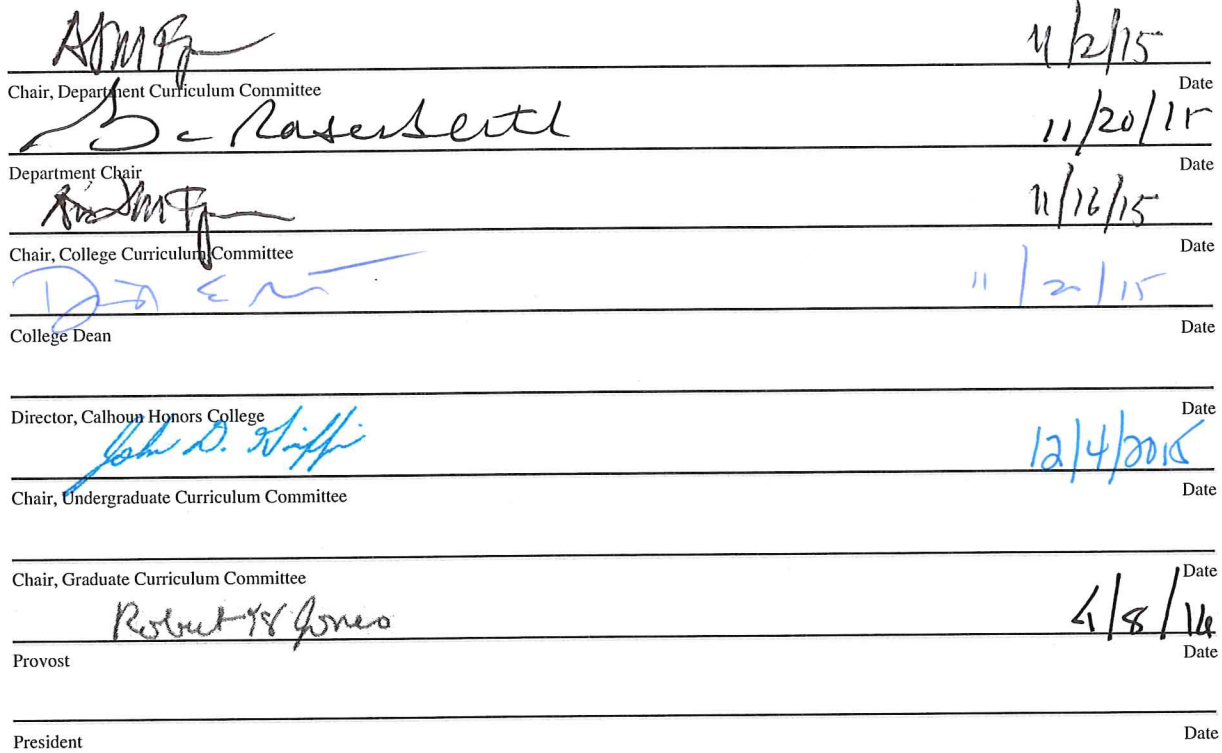 11/2/15
Chair, Department Curriculum Committee Date
11/20/15
Department Chair Date
11/16/15
Chair, College Curriculum Committee Date
College Dean Date
Director, Calhoun Honors College Date
John D. Griffin 12/4/2015
Chair, Undergraduate Curriculum Committee Date
Chair, Graduate Curriculum Committee Date
Robert H Jones 4/8/16
Provost Date
President Date